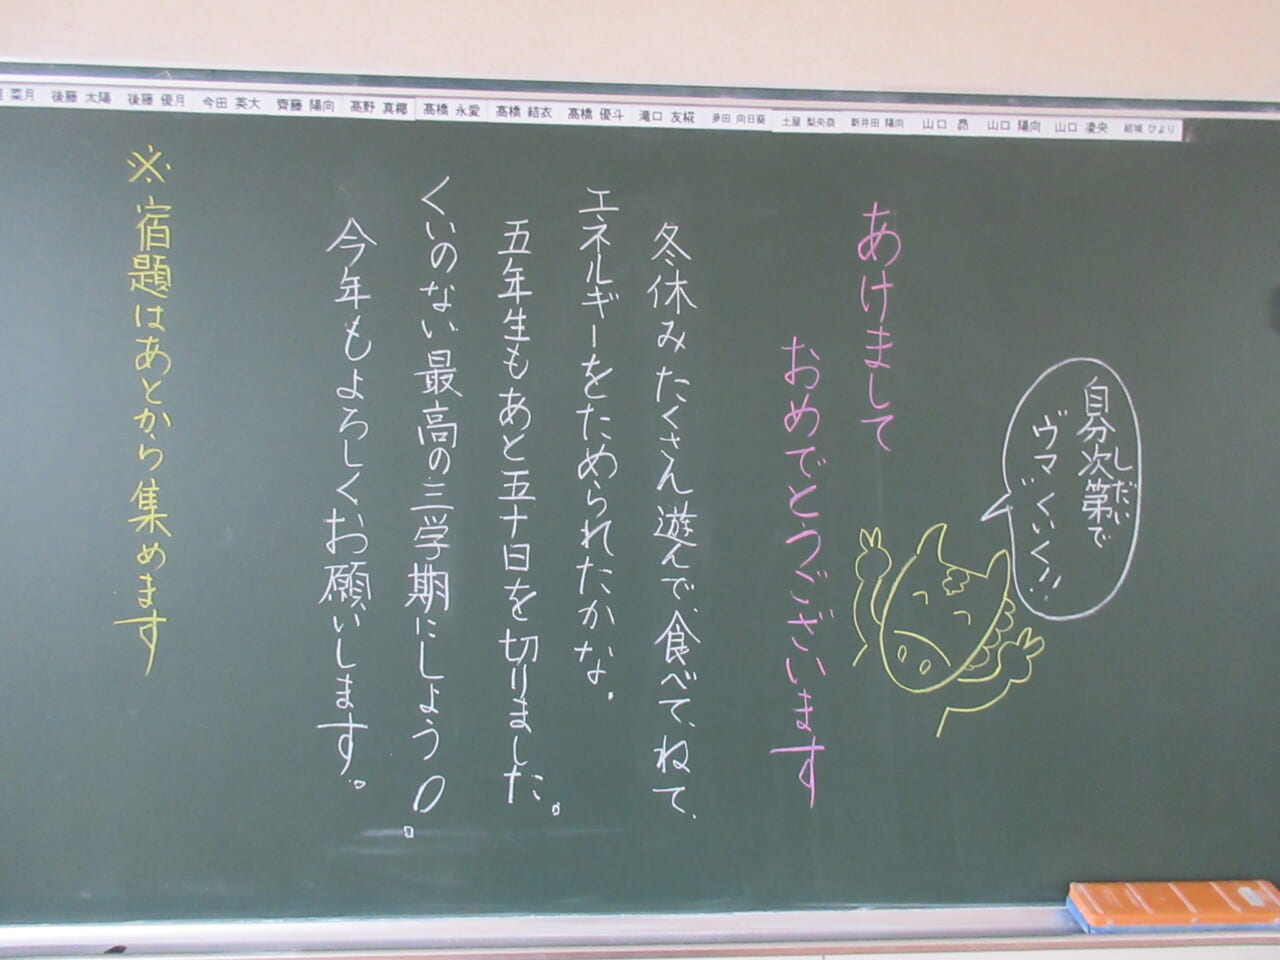 菜月 後藤 太陽 後藤 優月 今田 英大 齊藤 陽向 髙野 真椰 髙橋 永愛 髙橋 結衣 髙橋 優斗 滝口 友椛 多田 向日葵 土屋 梨央奈 新井田 陽向 山口 昴 山口 陽向 山口 凌央 結城 ひより
自分次第で
しだい
ヴマくいく!!
あけまして
おめでとうございます
冬休みたくさん遊んで、食べて、ねて、
エネルギーをためられたかな。
五年生もあと五十日を切りました。
くいのない最高の三学期にしよう。
今年もよろしくお願いします。
※宿題はあとから集めます